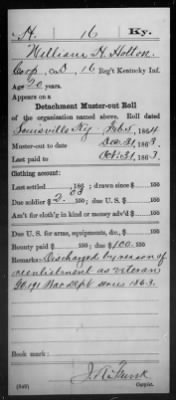 H. 16 Ky.
William H. Holton
Corp, Co. D, 16 Reg't Kentucky Inf.
Age 20 years.
Appears on a
Detachment Muster-out Roll
of the organization named above. Roll dated
Louisville Ky Feb. 1, 1864
Muster-out to date Dec. 31, 1863.
Last paid to Oct. 31, 1863.
Clothing account:
Last settled , 186 ; drawn since $ 100
Due soldier $ 2. 03/100; due U. S. $ 100
Am't for cloth'g in kind or money adv'd $ 100
Due U. S. for arms, equipments, &c., $ 100
Bounty paid $ 100; due $ 100. 100
Remarks: Discharged by reason of
reenlistment as veteran
G.O. 191 War Dept series 1863.
Book mark:
(840) Copyist.